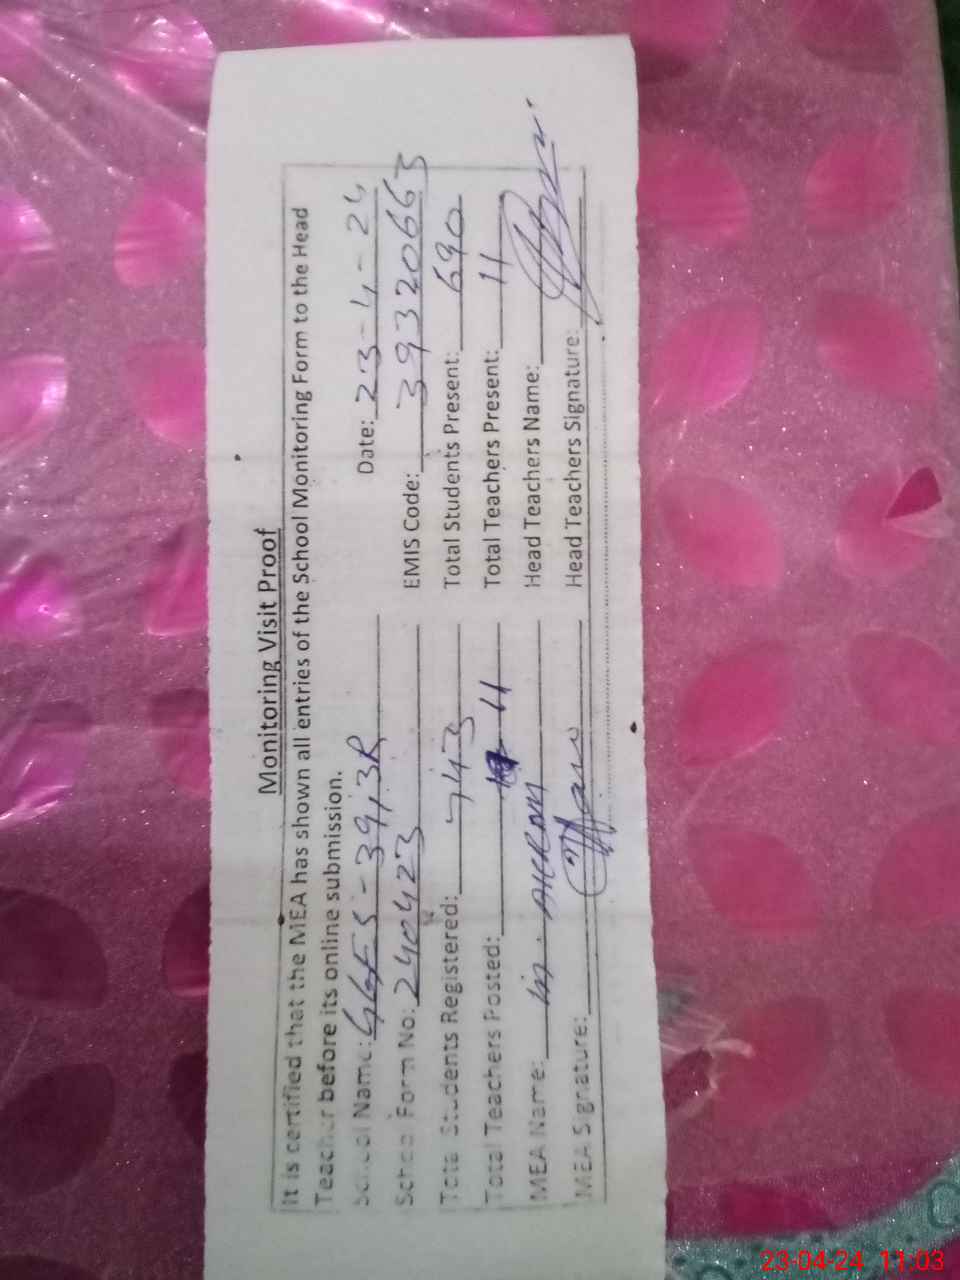 Monitoring Visit Proof
It is certified that the MEA has shown all entries of the School Monitoring Form to the Head
Teacher before its online submission.
School Name: GGES-39/3R Date: 23-4-24
School Form No: 240423 EMIS Code: 39320663
Total Students Registered: 743 Total Students Present: 690
Total Teachers Posted: 11 Total Teachers Present: 11
MEA Name: M. AKRAM Head Teachers Name:
MEA Signature: Head Teachers Signature:
23-04-24 11:03